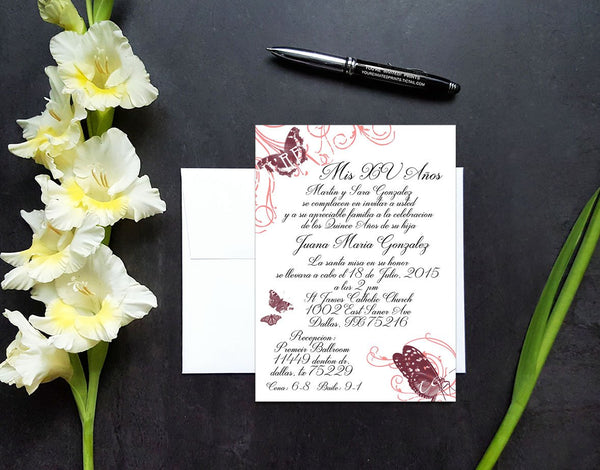 YOU'RE INVITED PRINTS
YOUREINVITEDPRINTS.TICTAIL.COM
Mis XV Años
Martin y Sara Gonzalez
se complacen en invitar a usted
y a su apreciable familia a la celebracion
de los Quince Años de su hija
Juana Maria Gonzalez
La santa misa en su honor
se llevara a cabo el 18 de Julio, 2015
a las 2 pm
St James Catholic Church
1002 East Saner Ave
Dallas, TX 75216
Recepcion:
Premeir Ballroom
11449 denton dr.
dallas, tx 75229
Cena: 6-8 Baile: 9-1